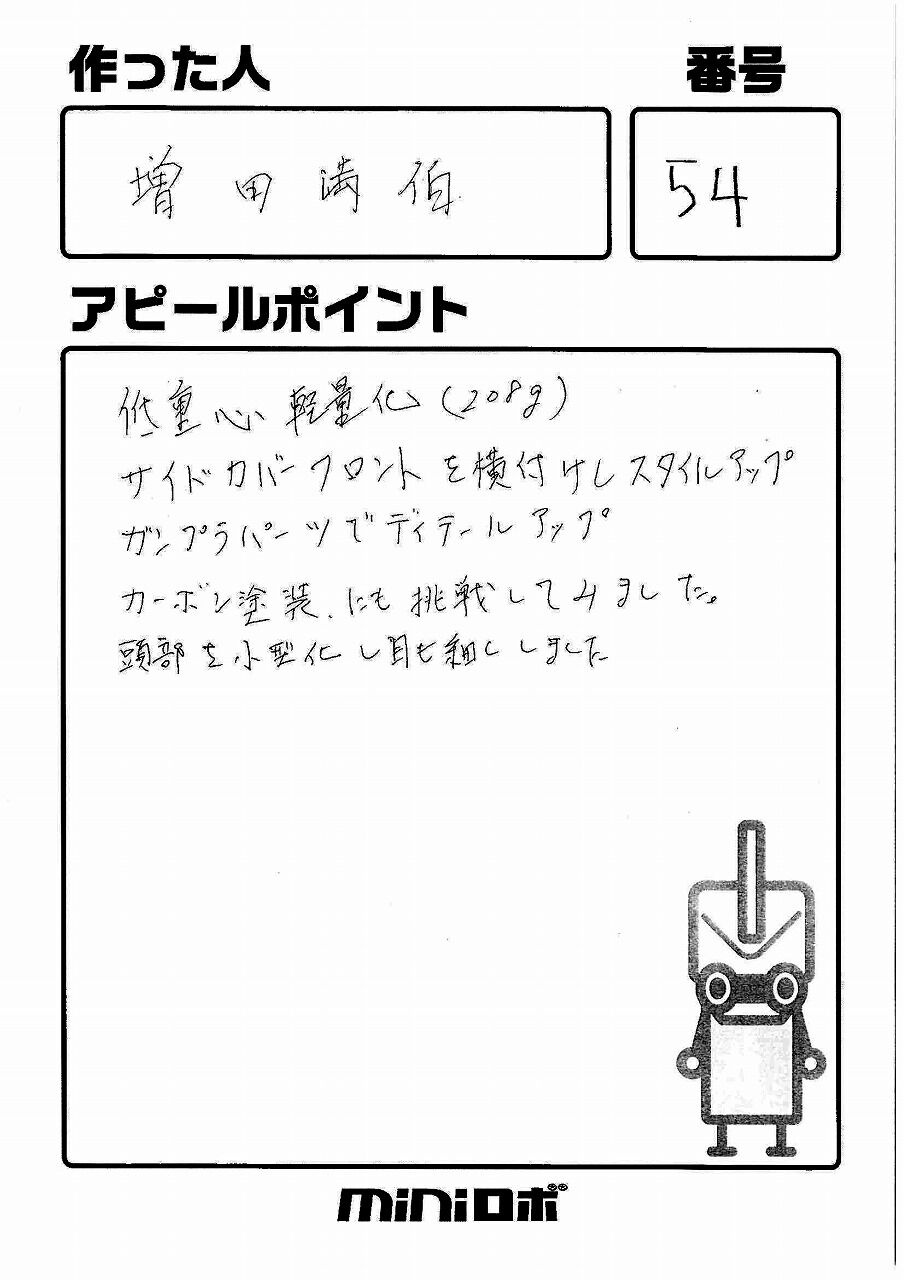 作った人
番号
増田満伯
54
アピールポイント
低重心 軽量化(208g)
サイドカバーフロントを横付けしスタイルアップ
ガンプラパーツでディテールアップ
カーボン塗装、にも挑戦してみました。
頭部を小型化し目も細くしました
miniロボ